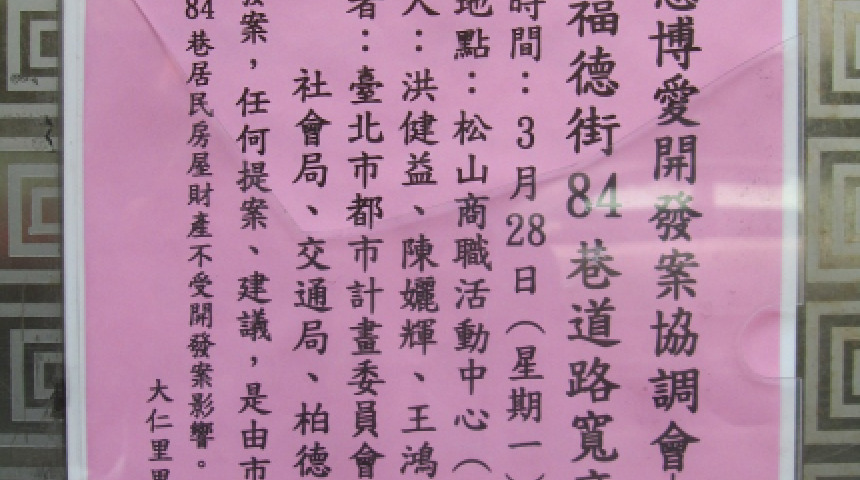 博愛開發案協調會
福德街84巷道路寬
時間：3月28日（星期一）
地點：松山商職活動中心（
人：洪健益、陳孋輝、王鴻
者：臺北市都市計畫委員會
社會局、交通局、柏德
發案，任何提案、建議，是由市
84巷居民房屋財產不受開發案影響。
大仁里里